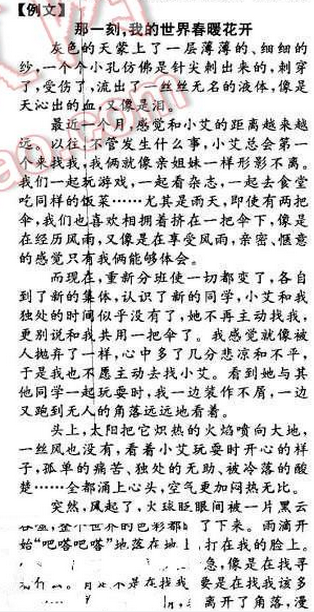 【例文】
那一刻,我的世界春暖花开
灰色的天蒙上了一层薄薄的、细细的
纱,一个个小孔仿佛是针尖刺出来的,刺穿
了,受伤了,流出了一丝丝无名的液体,像是
天沁出的血,又像是泪。
最近一个月,感觉和小艾的距离越来越
远。以往,不管发生什么事,小艾总会第一
个来找我,我俩就像亲姐妹一样形影不离。
我们一起玩游戏,一起看杂志,一起去食堂
吃同样的饭菜……尤其是雨天,即使有两把
伞,我们也喜欢相拥着挤在一把伞下,像是
在经历风雨,又像是在享受风雨,亲密、惬意
的感觉只有我俩能够体会。
而现在,重新分班使一切都变了,各自
到了新的集体,认识了新的同学,小艾和我
独处的时间似乎没有了,她不再主动找我,
更别说和我共用一把伞了。我感觉就像被
人抛弃了一样,心中多了几分悲凉和不平,
于是我也不愿主动去找小艾。看到她与其
他同学一起玩耍时,我一边装作不屑,一边
又跑到无人的角落远远地看着。
头上,太阳把它炽热的火焰喷向大地,
一丝风也没有,看着小艾玩耍时开心的样
子,孤单的痛苦、独处的无助、被冷落的酸
楚……全都涌上心头,空气更加闷热无比。
突然,风起了,火球眨眼间被一片黑云
吞噬,整个世界的色彩都 了下来。雨滴开
始“吧嗒吧嗒”地落在地上,打在我的脸上。
急,像是在找寻
是在找我 要是在找我该多
离开了角落,漫